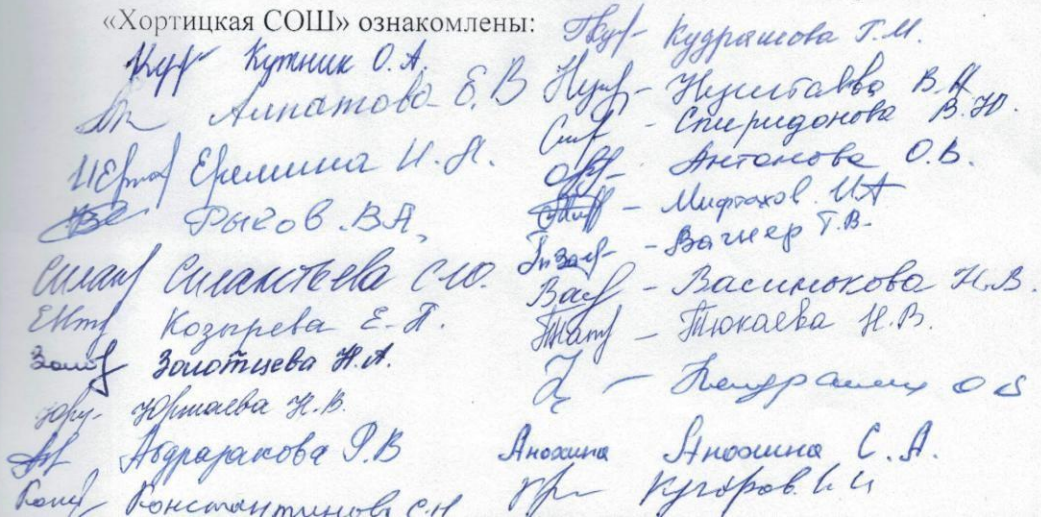 «Хортицкая СОШ» ознакомлены:
Кутник О.А.
Алпатова Е.В
Еремина И.А.
Рыков В.А.
Силантьева С.Ю.
Козырева Е.П.
Золотцева Н.А.
Юртаева Н.В.
Абдразакова Р.В
Константинова С.Н
Кудрашова Г.М.
В.А.
Спиридонова В.Ю.
Антонова О.В.
Мифтахов И.А
Вагнер Т.В.
Васинюкова Н.В.
Тюкаева Н.В.
Анохина Анохина С.А.
Кучеров